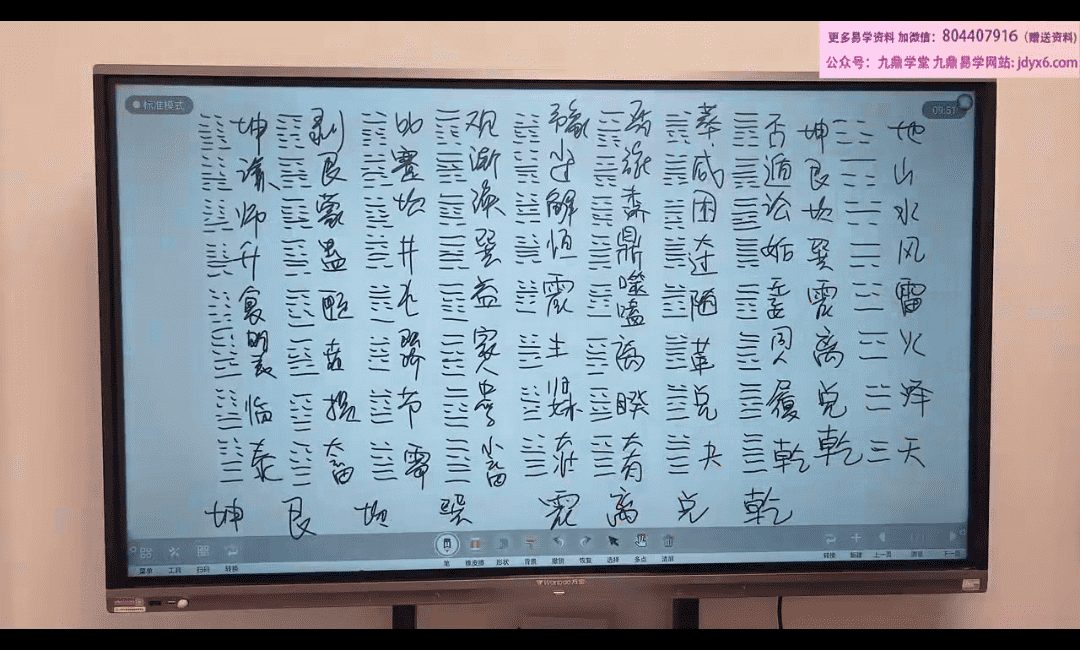 更多易学资料 加微信：804407916（赠送资料）
公众号：九鼎学堂 九鼎易学网站: jdyx6.com
标准模式 09:51
坤 剥 比 观 豫 晋 萃 否 坤 地
谦 艮 蹇 渐 小过 旅 咸 遁 艮 山
师 蒙 坎 涣 解 困 讼 坎 水
升 蛊 井 巽 恒 鼎 大过 姤 巽 风
复 颐 屯 益 震 噬嗑 随 震 雷
明夷 贲 家人 丰 离 革 同人 离 火
临 损 节 中孚 归妹 睽 兑 履 兑 泽
泰 大畜 需 小畜 大壮 大有 夬 乾 乾 天
坤 艮 坎 巽 震 离 兑 乾
菜单 工具 扫码 转换 笔 橡皮擦 形状 背景 撤销 恢复 选择 多点 清屏 转换 新建 上一页 下一页